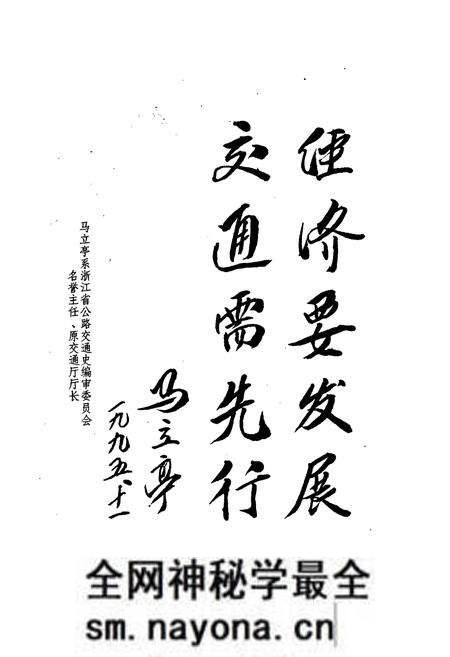 经济要发展
交通需先行
马立亭
一九九五、十一
马立亭系浙江省公路交通史编审委员会
名誉主任、原交通厅厅长
全网神秘学最全
sm.nayona.cn